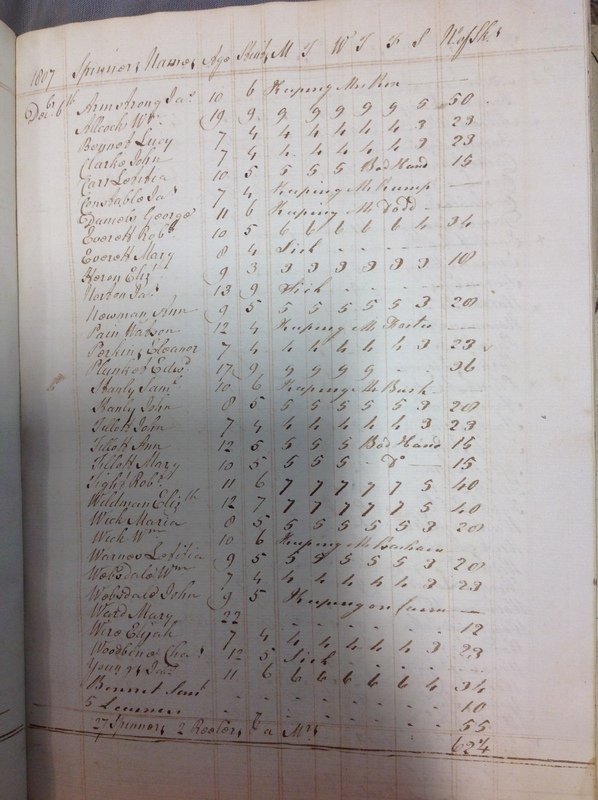 1807 Spinners Names Age Stint M T W T F S No of Sks
Decr 6th Armstrong Jas 10 6 Keeping Mr Ken —
Allcock Wm 19 9 9 9 9 9 9 5 50
Boynot Lucy 7 4 4 4 4 4 4 3 23
Clarke John 7 4 4 4 4 4 4 3 23
Carr Letitia 10 5 5 5 5 Bad Hand 15
Constable Jas 7 4 Keeping Mr Crump —
Daniels George 11 6 Keeping Mr Dodd —
Everett Robt 10 5 6 6 6 6 6 4 34
Everett Mary 8 4 Sick
Heren Elizt 9 3 3 3 3 3 3 3 18
Norton Jas 13 9 Sick
Newman Ann 9 5 5 5 5 5 5 3 28
Pain Watson 12 4 Keeping Mr
Perkins Eleanor 7 4 4 4 4 4 4 3 23
Plunket Edwd 17 9 9 9 9 9 36
Stanly Saml 10 6 Keeping Mr Bush
Stanly John 8 5 5 5 5 5 5 3 28
Tillott John 7 4 4 4 4 4 4 3 23
Tillott Ann 12 5 5 5 5 Bad Hand 15
Tillott Mary 10 5 5 5 5 - Do - 15
Tight Robt 11 6 7 7 7 7 7 5 40
Wildman Elizth 12 7 7 7 7 7 7 5 40
Wick Maria 8 5 5 5 5 5 5 3 28
Wick Wm 10 6 Keeping Mr
Warnes Letitia 9 5 5 5 5 5 5 3 28
Websdale Wm 7 4 4 4 4 4 4 3 23
Websdale John 9 5 Keeping on farm —
Ward Mary 22 12
Wire Elijah 7 4 4 4 4 4 4 3 23
Woodbine Chas 12 5 Sick
Youngs Jas 11 6 6 6 6 6 6 4 34
Bennet Saml 10
5 Learners 55
27 Spinners 2 Reelers 6 a Mrs 624